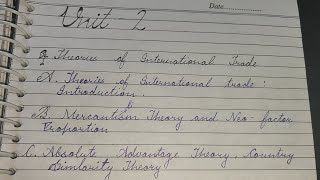 Date
Unit - 2
Theories of International Trade
A. Theories of International trade :
Introduction.
B. Mercantilism Theory and Neo-factor
Proportion
C. Absolute Advantage Theory, Country
Similarity Theory